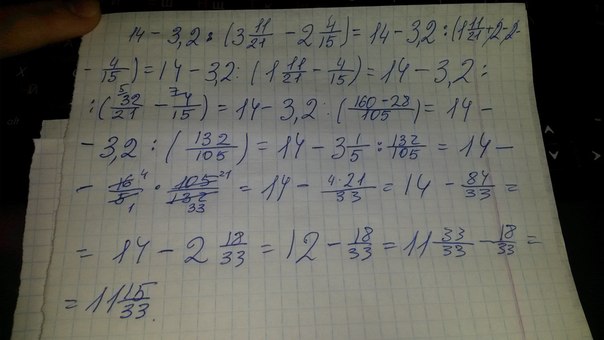 14 - 3,2 : (3 11/21 - 2 4/15) = 14 - 3,2 : (1 11/21 + 2 - 2 -
- 4/15) = 14 - 3,2 : (1 11/21 - 4/15) = 14 - 3,2 :
: (⁵32/21 - ⁷4/15) = 14 - 3,2 : (160-28/105) = 14 -
- 3,2 : (132/105) = 14 - 3 1/5 : 132/105 = 14 -
- 16 4/5 1 · 105 21/132 33 = 14 - 4·21/33 = 14 - 84/33 =
= 14 - 2 18/33 = 12 - 18/33 = 11 33/33 - 18/33 =
= 11 15/33.